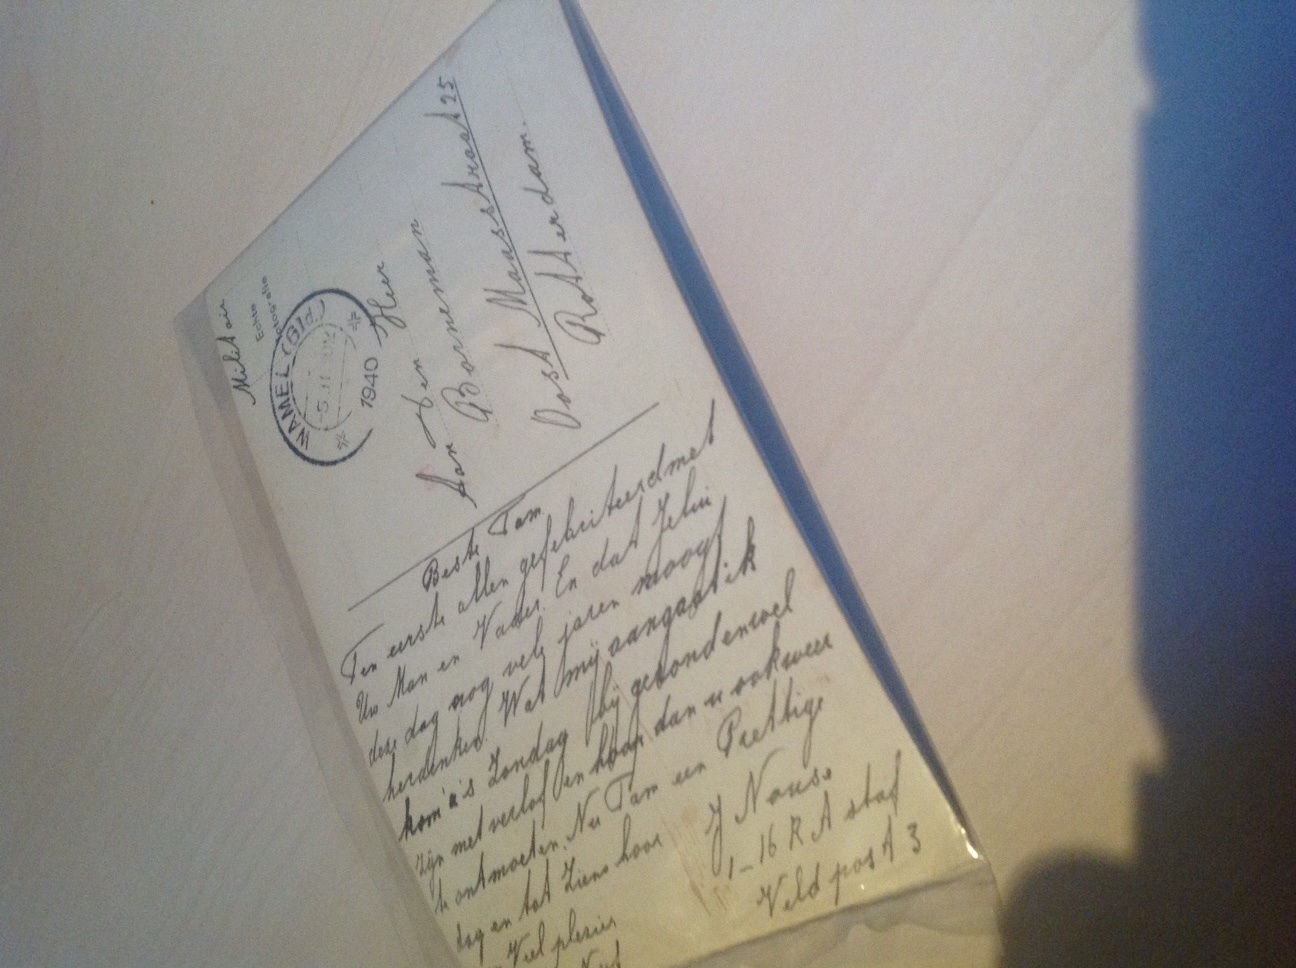 Militair
Echte
Fotografie
WAMEL (Gld)
1940
Aan Den Heer
Borneman
Oost Maasstraat 25
Rotterdam.
Beste Tam
Ten eerste allen gefeliciteerd met
Uw Man en Vader. En dat Jelui
deze dag nog vele jaren moogt
herdenken. Wat mij aangaat ik
kom a's Zondag bij gezond en wel
zijn met verlof en hoop dan u ook weer
te ontmoeten. Nu Tam een Prettige
dag en tot Ziens hoor
Veel plezier
J
1-16 R A staf
Veldpost 3